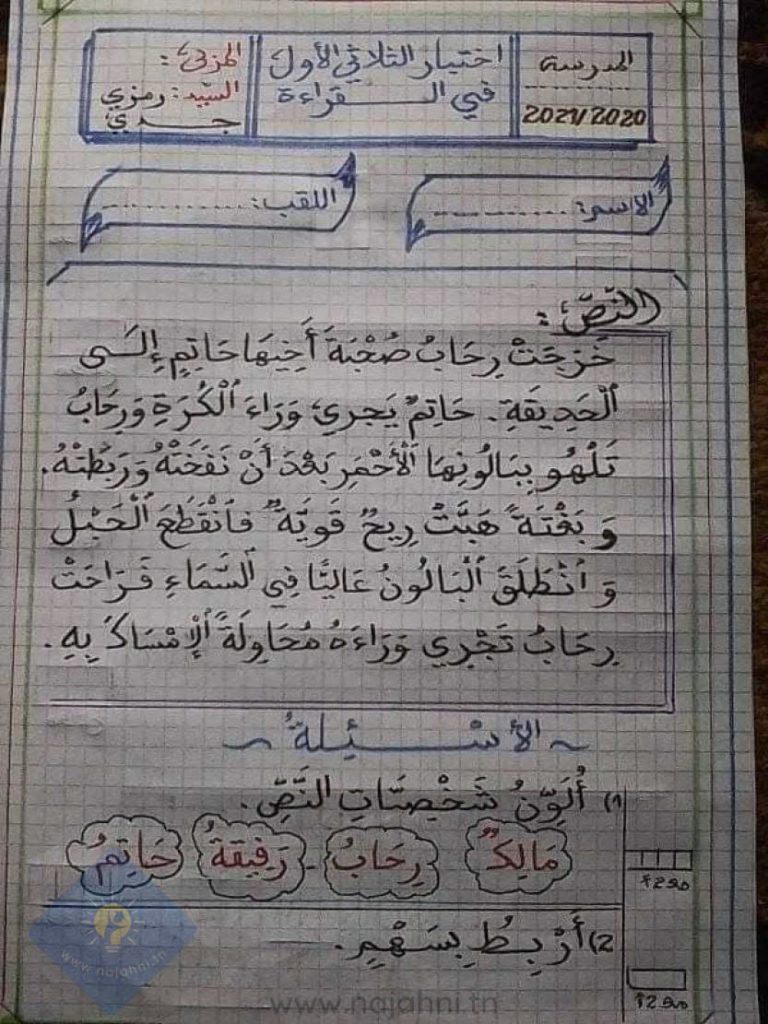 المدرسة
............
2021/2020
اختبار الثلاثي الأول
في القراءة
المربي:
السيد: رمزي
جدي
الاسم: ............
اللقب: ............
النّصّ:
خَرَجَتْ رِحَابُ صُحْبَةَ أَخِيهَا حَاتِمٍ إِلَى
ٱلْحَدِيقَةِ. حَاتِمٌ يَجري وَرَاءَ ٱلْكُرَةِ وَرِحَابُ
تَلْهُو بِبَالُونِهَا ٱلْأَحْمَرِ بَعْدَ أَنْ نَفَخَتْهُ وَرَبَطَتْهُ.
وَ بَغْتَةً هَبَّتْ رِيحٌ قَوِيَّةٌ فَٱنْقَطَعَ ٱلْحَبْلُ
وَ ٱنْطَلَقَ ٱلْبَالُونُ عَالِيًا فِي ٱلسَّمَاءِ فَرَاحَتْ
رِحَابُ تَجْرِي وَرَاءَهُ مُحَاوِلَةً ٱلْإِمْسَاكَ بِهِ.
~ الأسْئِلةُ ~
1) أُلَوِّنُ شَخْصِيَّاتِ النَّصِّ.
مَالِكٌ
رِحَابُ
رَفِيقَةُ
حَاتِمُ
مع2
2) أَرْبِطُ بِسَهْمٍ.
مع2
www.najahni.tn
www.najahni.tn